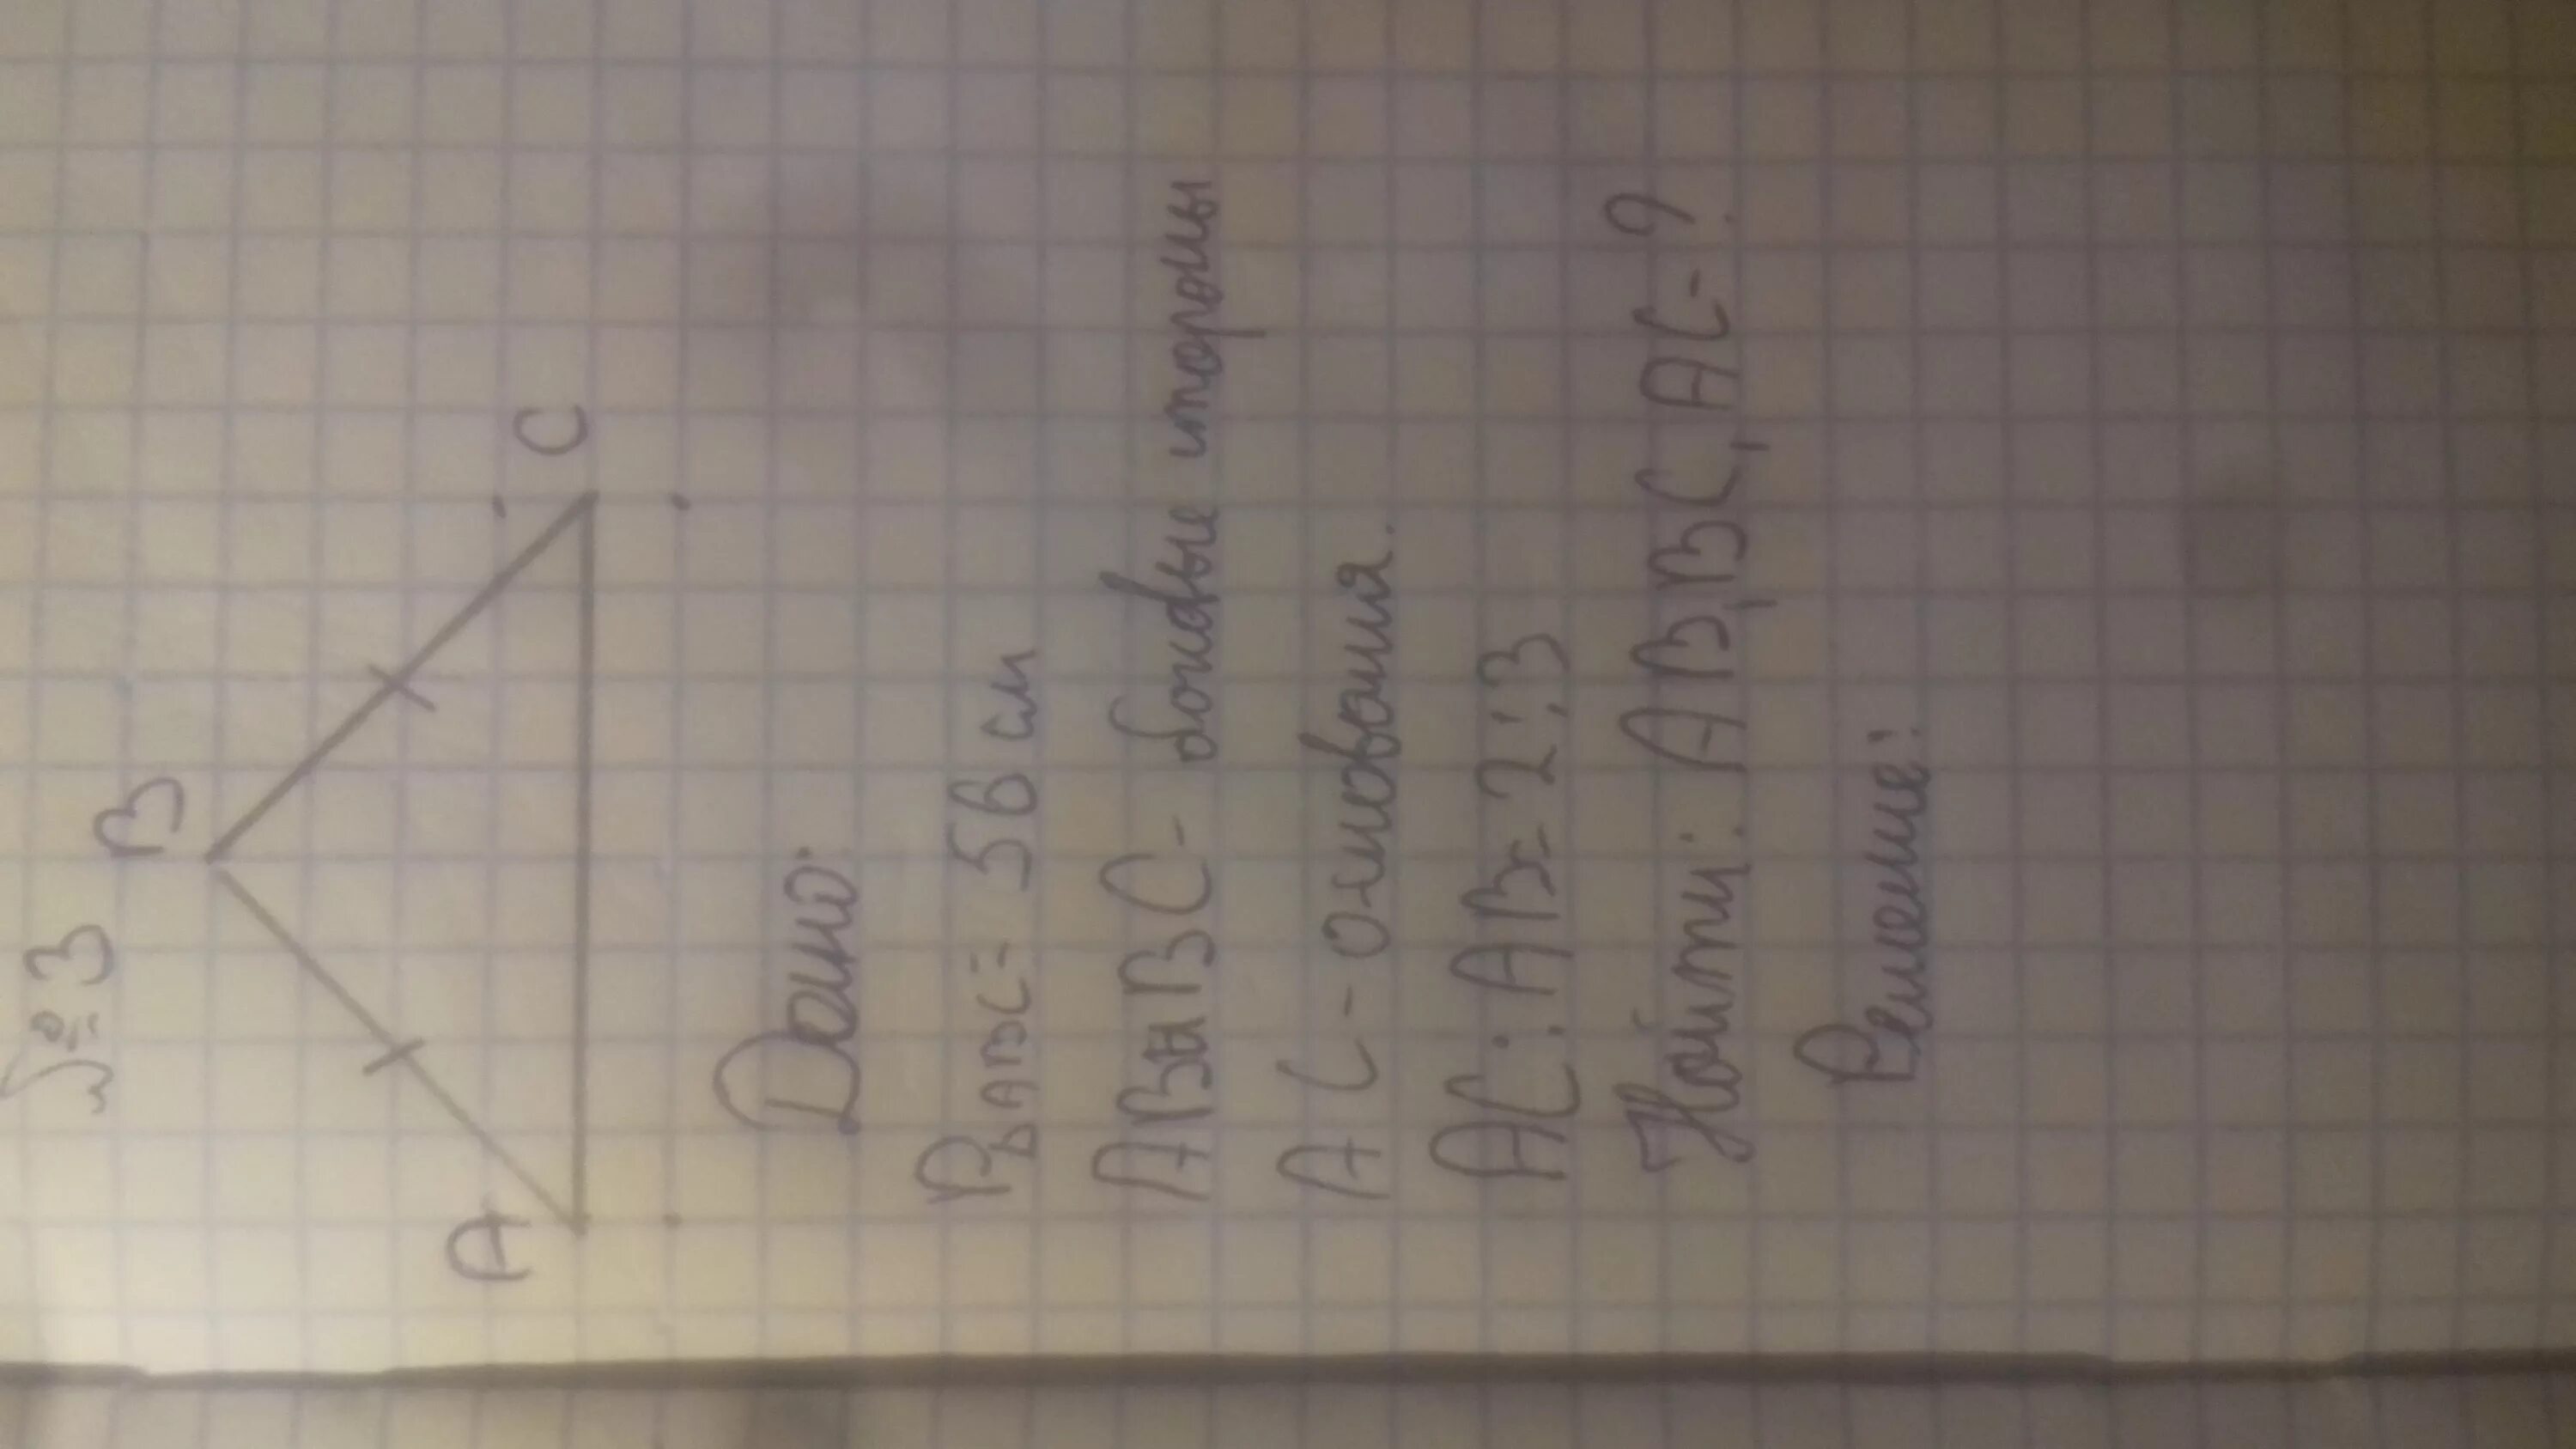 № 3
B
A
C
Дано:
P∆ABC = 56 см
AB и BC - боковые стороны
AC - основания.
AC : AB = 2 : 3
Найти: AB, BC, AC - ?
Решение: